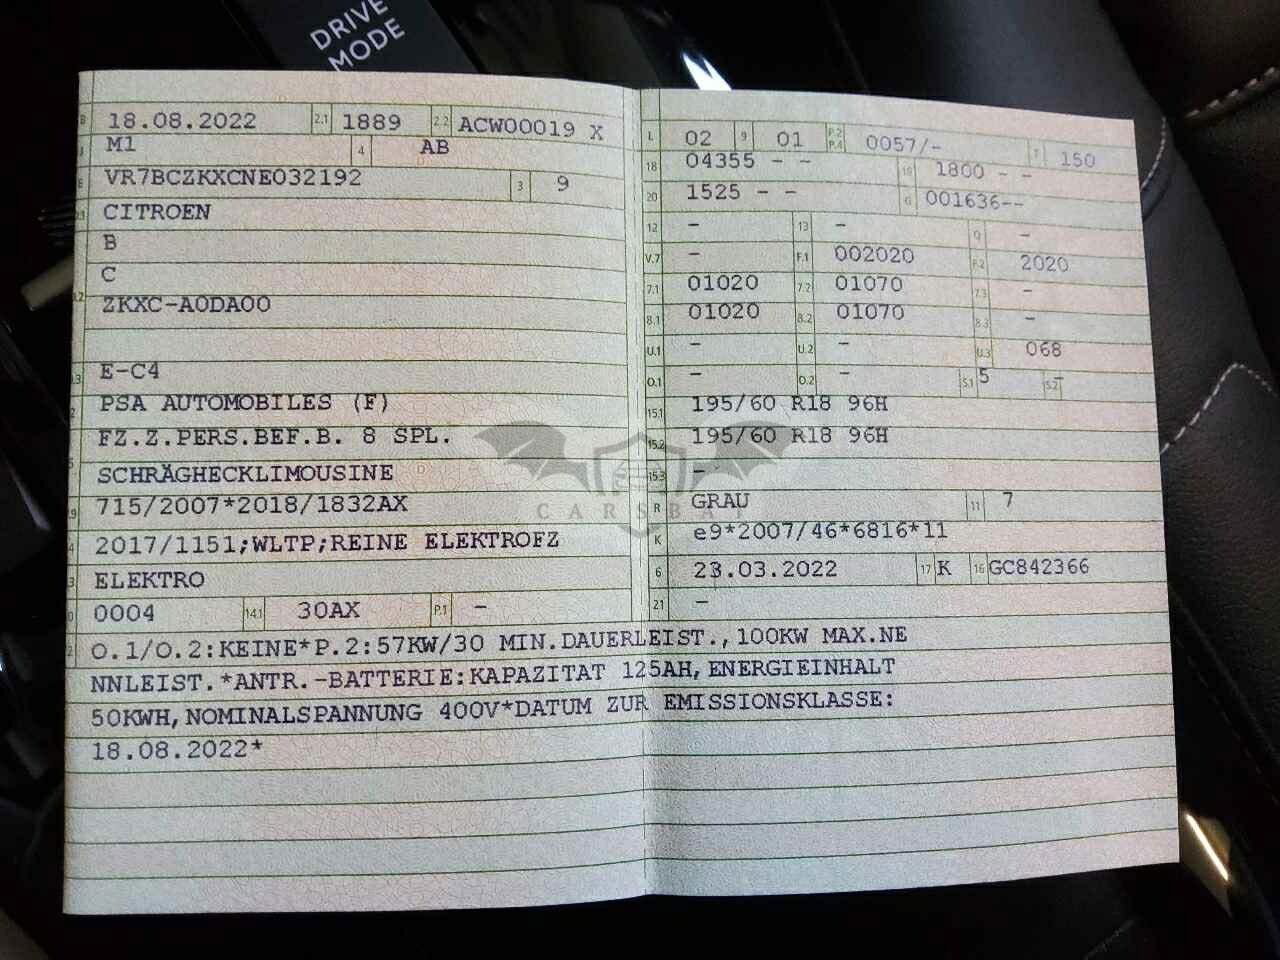 DRIVE
MODE
B 18.08.2022 2.1 1889 2.2 ACW00019 X
J M1 4 AB
E VR7BCZKXCNE032192 3 9
D.1 CITROEN
B
C
D.2 ZKXC-A0DA00
D.3 E-C4
2 PSA AUTOMOBILES (F)
FZ.Z.PERS.BEF.B. 8 SPL.
5 SCHRÄGHECKLIMOUSINE
V.9 715/2007*2018/1832AX
14 2017/1151;WLTP;REINE ELEKTROFZ
P.3 ELEKTRO
10 0004 14.1 30AX P.1 -
L 02 9 01 P.2 P.4 0057/- T 150
18 04355 - - 19 1800 - -
20 1525 - - G 001636--
12 - 13 - Q -
V.7 - F.1 002020 F.2 2020
7.1 01020 7.2 01070 7.3 -
8.1 01020 8.2 01070 8.3 -
U.1 - U.2 - U.3 068
O.1 - O.2 - S.1 5 S.2 -
15.1 195/60 R18 96H
15.2 195/60 R18 96H
15.3 -
R GRAU 11 7
K e9*2007/46*6816*11
6 23.03.2022 17 K 16 GC842366
21 -
22 O.1/O.2:KEINE*P.2:57KW/30 MIN.DAUERLEIST.,100KW MAX.NE
NNLEIST.*ANTR.-BATTERIE:KAPAZITAT 125AH,ENERGIEINHALT
50KWH,NOMINALSPANNUNG 400V*DATUM ZUR EMISSIONSKLASSE:
18.08.2022*
CARSBAT